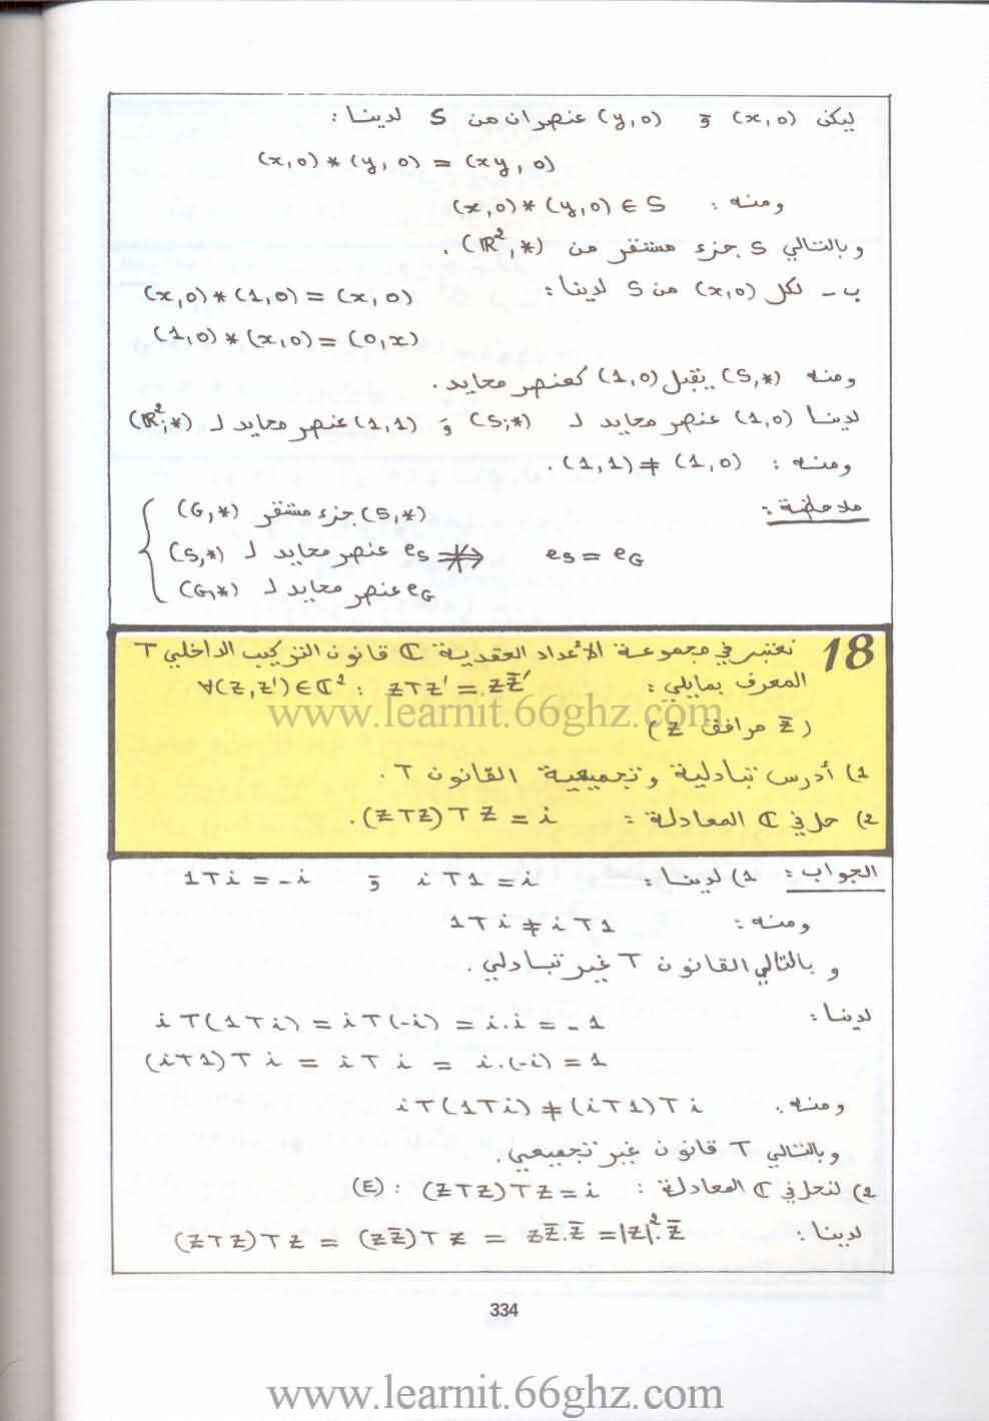 ليكن (x,0) و (y,0) عنصران من S لدينا :
(x,0) * (y,0) = (xy,0)
ومنه : (x,0)*(y,0) ∈ S
وبالتالي S جزء مستقر من (ℝ²,*).
ب - لكل (x,0) من S لدينا : (x,0)*(1,0) = (x,0)
(1,0)*(x,0) = (0,x)
ومنه (S,*) يقبل (1,0) كعنصر محايد.
لدينا (1,0) عنصر محايد لـ (S;*) و (1,1) عنصر محايد لـ (ℝ²;*)
ومنه : (1,1) ≠ (1,0).
ملاحظة :
(S,*) جزء مستقر (G,*)
eS = eG ⇎ eS عنصر محايد لـ (S,*)
eG عنصر محايد لـ (G,*)
18 نعتبر في مجموعة الأعداد العقدية ℂ قانون التركيب الداخلي T
المعرف بمايلي : ∀(z,z')∈ℂ² : zTz' = z.z̄'
(z̄ مرافق z)
1) أدرس تبادلية وتجميعية القانون T.
2) حل في ℂ المعادلة : (zTz)Tz = i.
الجواب : 1) لدينا : iT1 = i و 1Ti = -i
ومنه : 1Ti ≠ iT1
و بالتالي القانون T غير تبادلي.
لدينا : iT(1Ti) = iT(-i) = i.i = -1
(iT1)Ti = iTi = i.(-i) = 1
ومنه. iT(1Ti) ≠ (iT1)Ti
وبالتالي T قانون غير تجميعي.
2) لنحل في ℂ المعادلة : (E) : (zTz)Tz = i
لدينا : (zTz)Tz = (zz̄)Tz = zz̄.z̄ = |z|².z̄
334
www.learnit.66ghz.com
www.learnit.66ghz.com